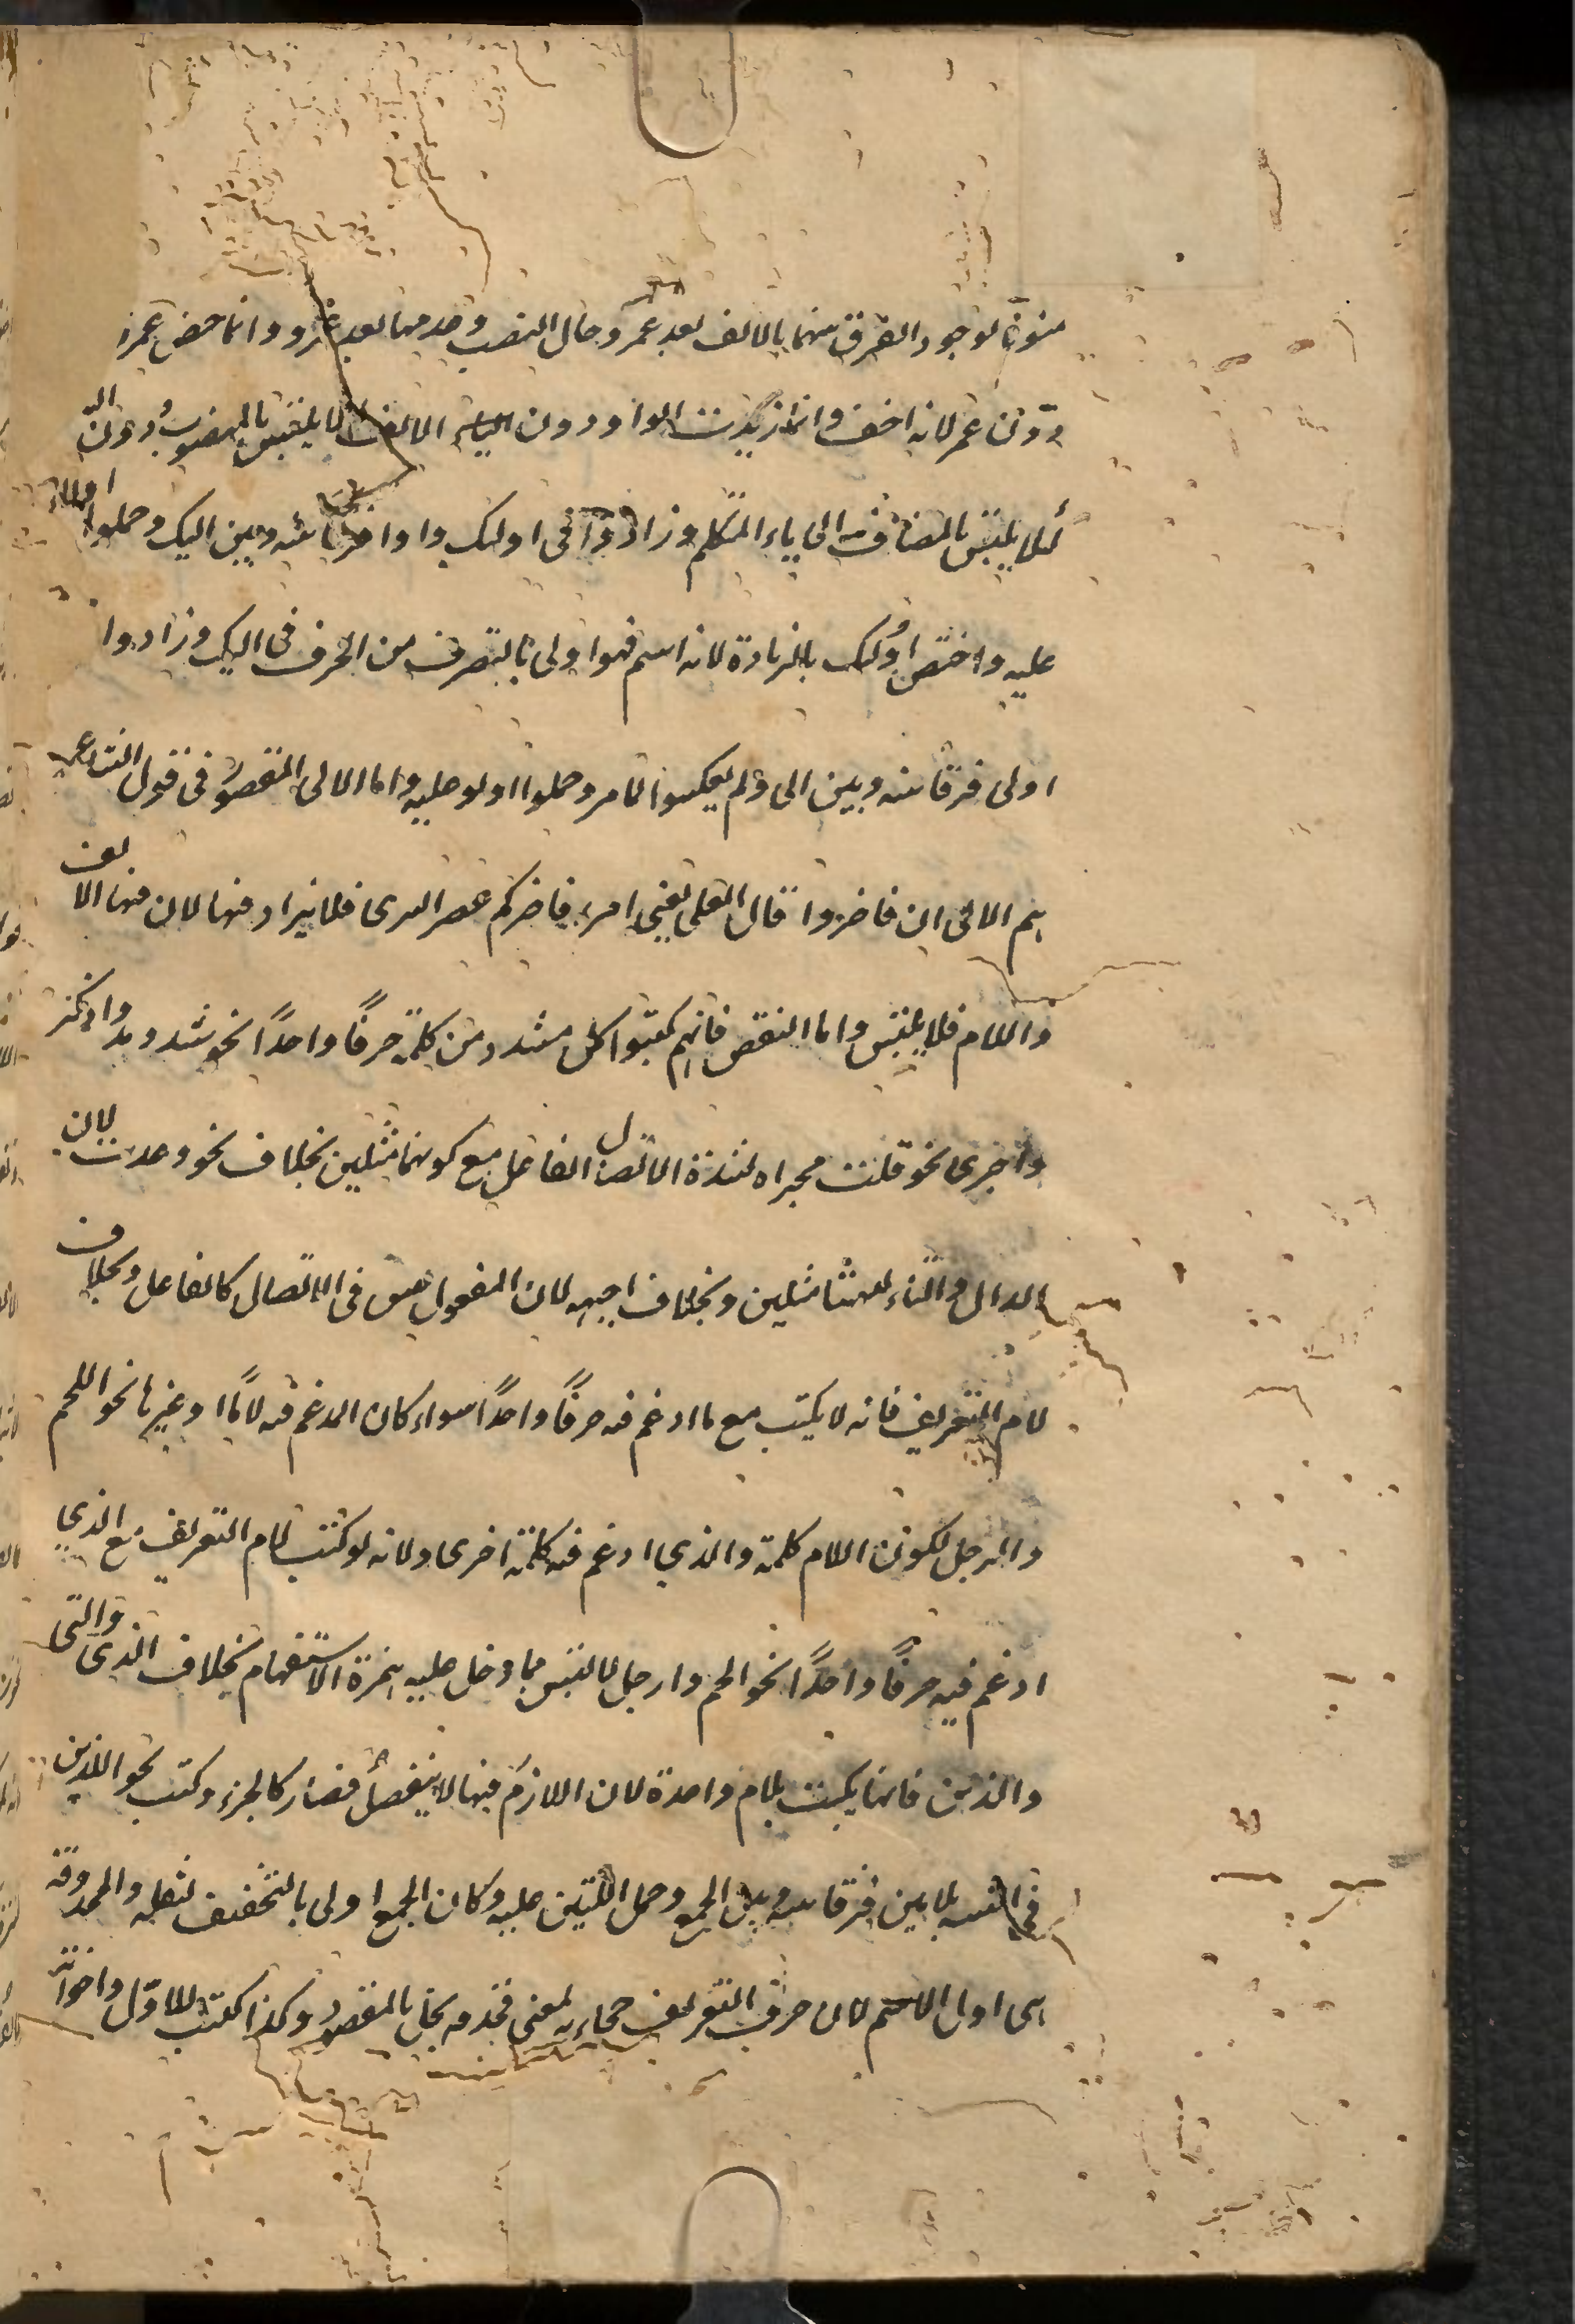 منونا لوجود الفرق بينهما بالالف بعد عمر وحال النصب وعدمها بعد عمرو وانما خص عمرو
دون عمر لانه اخف وانما زيدت الواو دون الالف لئلا يلتبس بالمنصوب ودون الياء
لئلا يلتبس بالمضاف الى ياء المتكلم وزادوا في اولئك واوا فرقا بينه وبين اليك وحملوا اولاء
عليه واختص اولئك بالزيادة لانه اسم فهو اولى بالتصرف من الحرف في اليك وزادوا
اولى فرقا بينه وبين الى ولم يعكسوا لما مر وحملوا اولو عليه واما الالى المقصور في قول الشاعر
هم الالى ان فاخروا قال العلى بفي امرء فاخركم عفر البرى فلا يزاد فيها لان فيها الالف
واللام فلا يلتبس واما النقص فانهم كتبوا كل مشدد من كلمة حرفا واحدا نحو شد ومد وادكر
واجرى نحو قتت مجراه لشدة اتصال الفاعل مع كونهما مثلين بخلاف نحو وعدت لان
الدال والتاء ليستا مثلين وبخلاف اجبهه لان المفعول ليس في الاتصال كالفاعل وبخلاف
لام التعريف فانه لا يكتب مع ما ادغم فيه حرفا واحدا سواء كان المدغم فيه لاما او غيرها نحو اللحم
والرجل لكون اللام كلمة والذي ادغم فيه كلمة اخرى ولانه لو كتب لام التعريف مع الذي
ادغم فيه حرفا واحدا نحو الحم وارجل لالتبس بما دخل عليه همزة الاستفهام بخلاف الذي والتي
والذين فانها يكتب بلام واحدة لان اللازم فيها لا ينفصل فصار كالجزء وكتب نحو اللذين
في التثنية بلامين فرقا بينه وبين الجمع وحمل اللتين عليه وكان الجمع اولى بالتخفيف لثقله والمحذوفة
هى اول الاسم لان حرف التعريف جاء به لمعنى فحذفه يخل بالمقصود وكذا كتب للاول واخواته